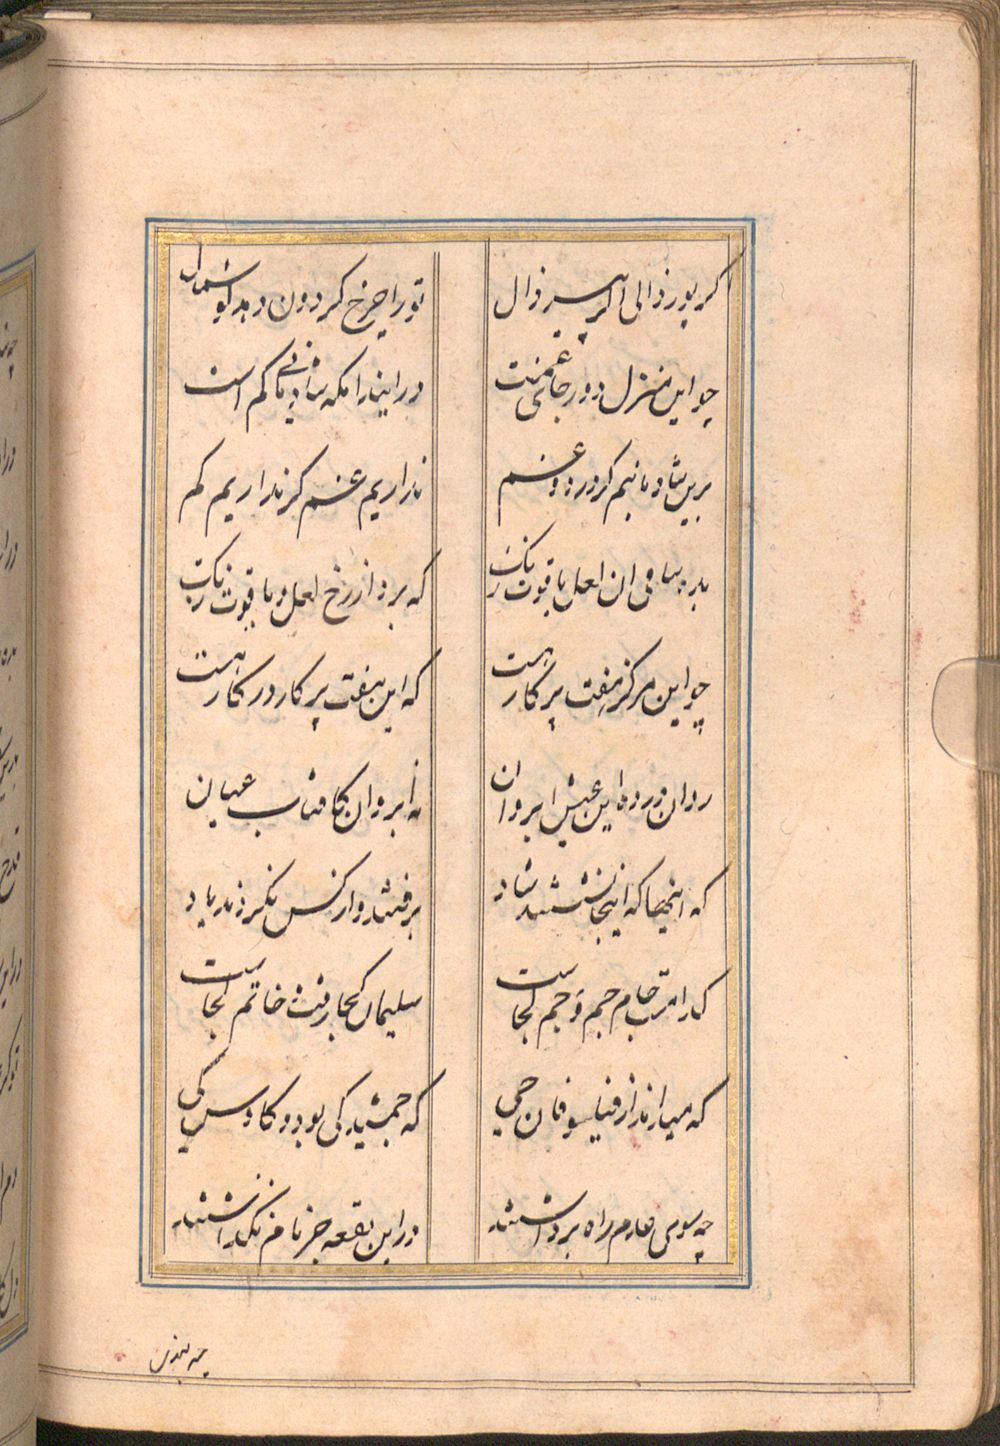 گر پور زالی اگر پیر زال
تو را چرخ گردون دهد گوشمال
چو این منزل درد جای غمست
در اینزا مکه شادمانی کم است
برین شادمانیم کز درد و غم
نداریم غم گر نداریم کم
بده ساقی ان لعل یاقوت رنگ
که برد از رخ لعل و یاقوت رنگ
چو این مرکز هفت پرگار هست
که این هفت پرگار در کار هست
روان در ده این عیش ابروان
نه ابروان کافتاب عیان
که اینها که اینجا نشستند شاد
برفتند و از کس نکردند یاد
که را مرتب جام جم و جم کجاست
سلیمان کجا رفت خاتم کجاست
که میداند از فیلسوفان حی
که جمشید کی بود و کاوس کی
چو سوی عدم راه برداشتند
در این بقعه جز نام نگذاشتند
چه بندی